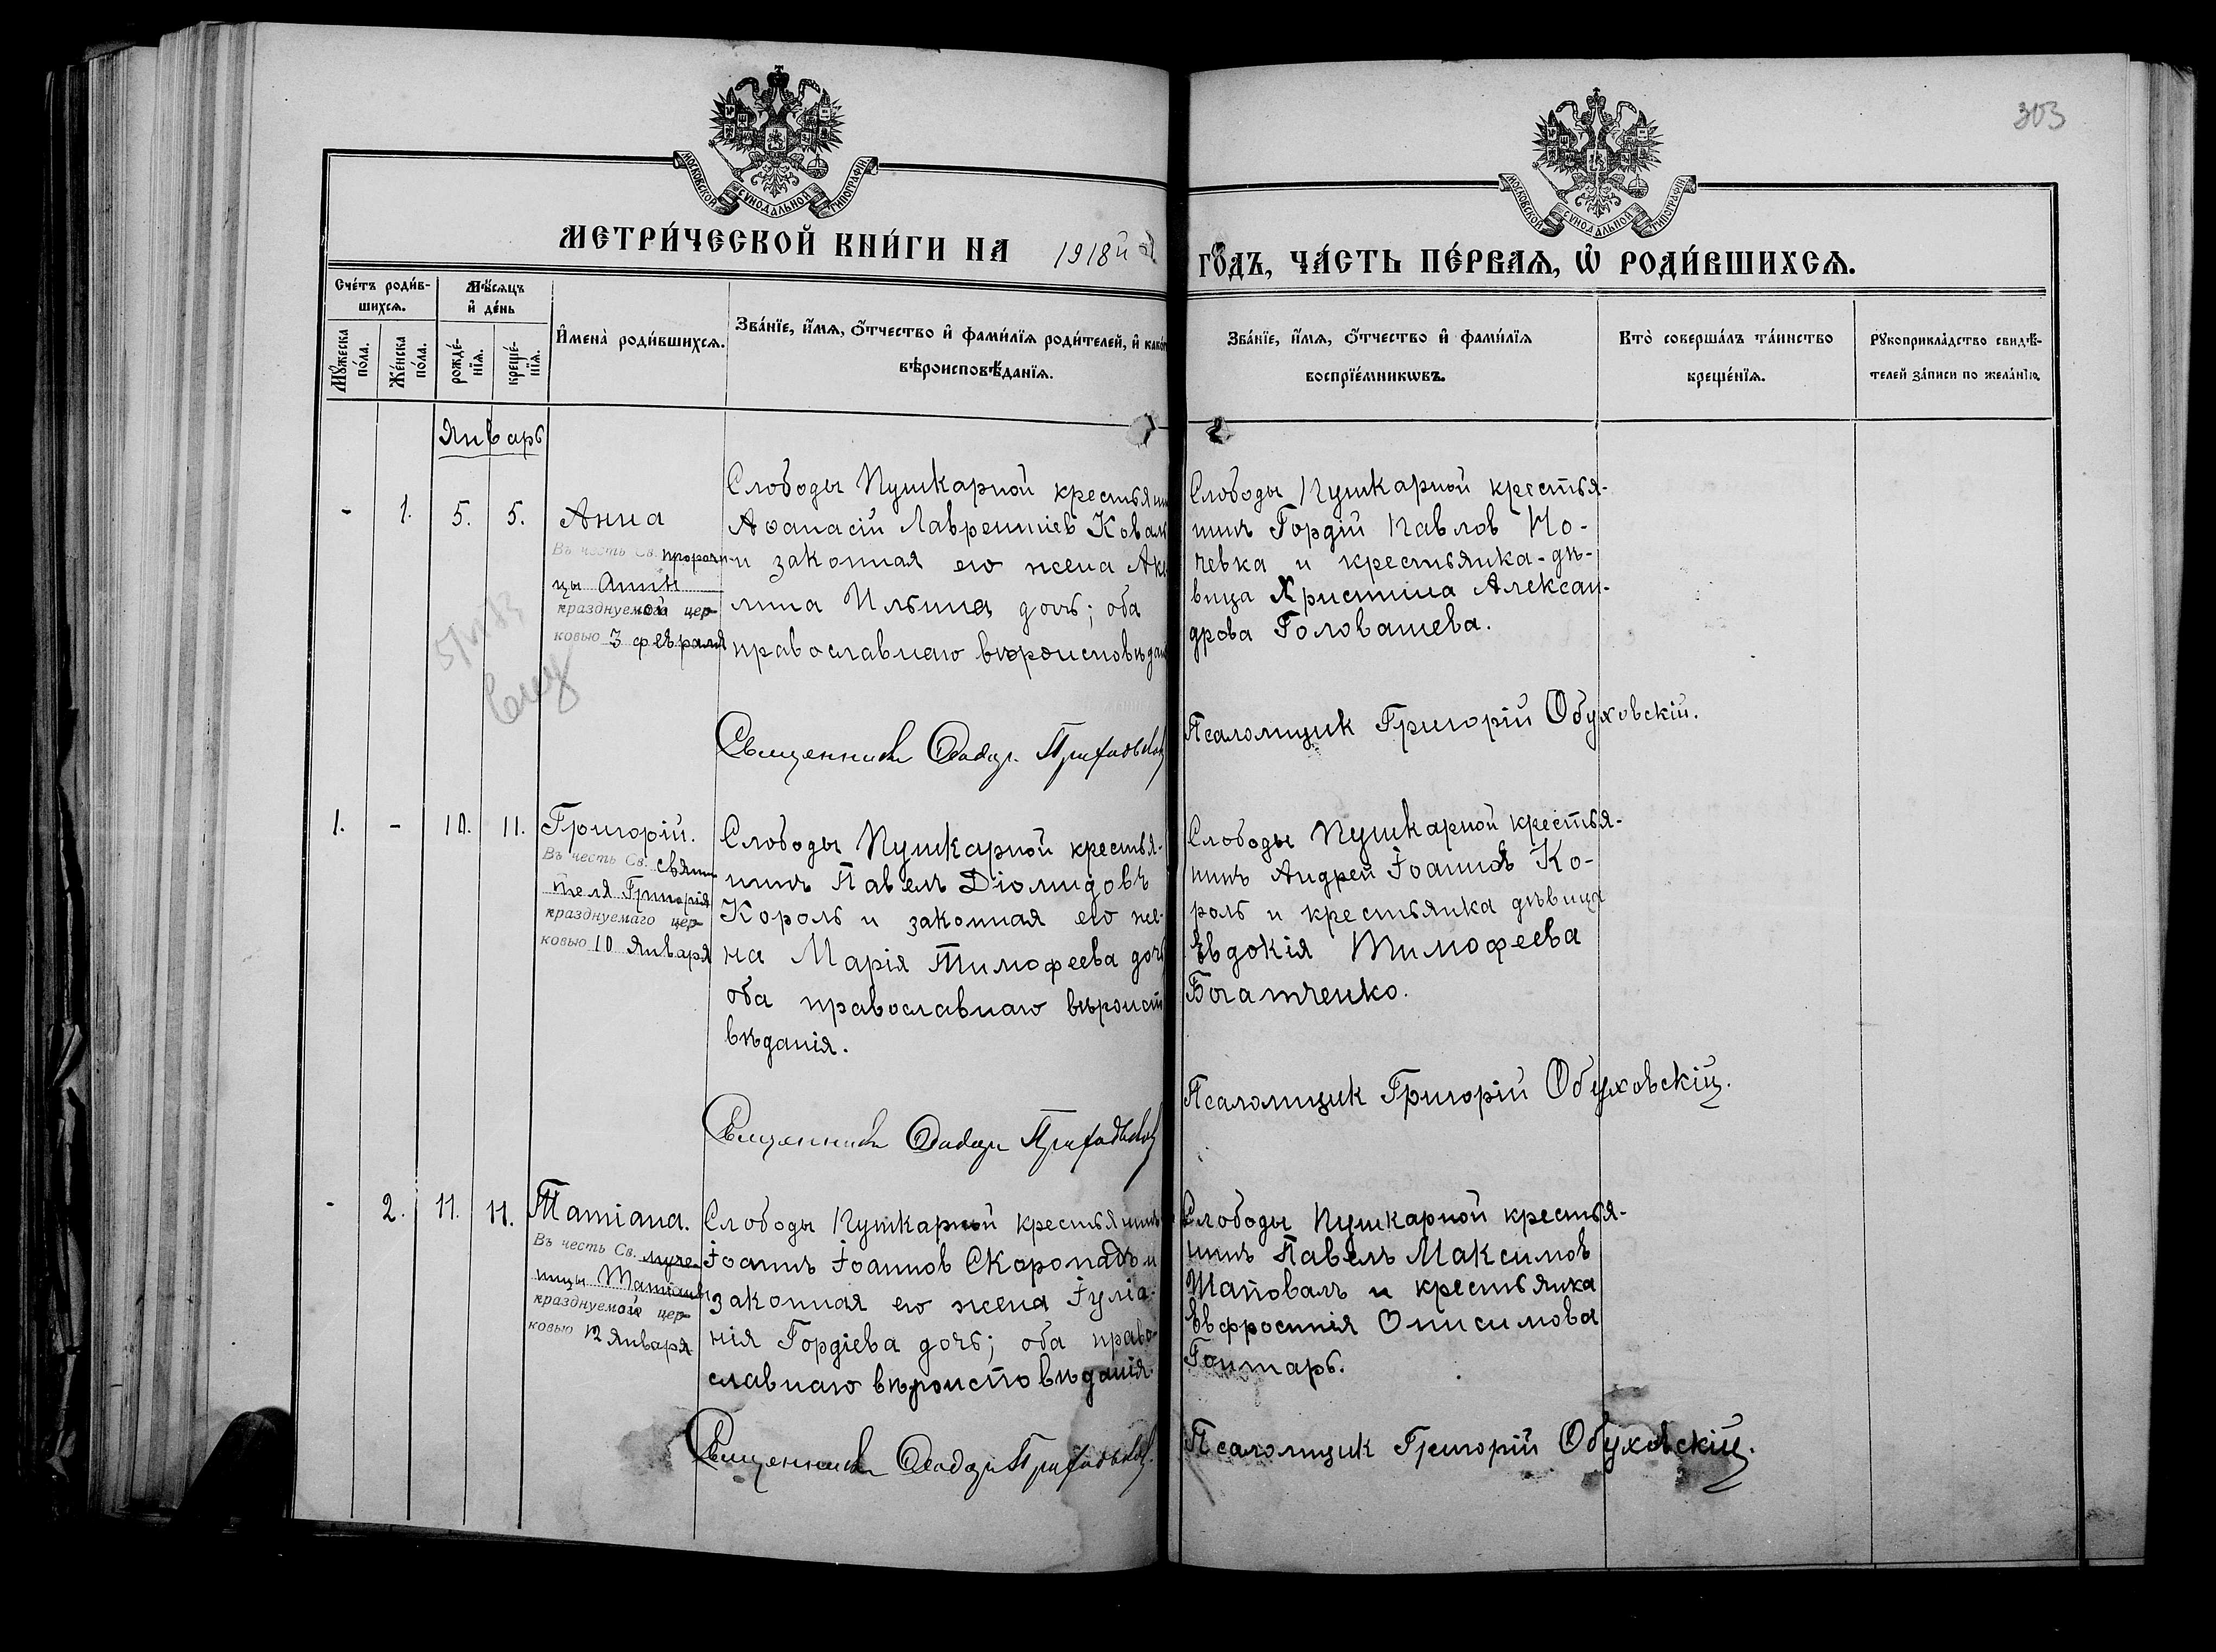 303
МОСКОВСКОЙ СѴНОДАЛЬНОЙ ТИПОГРАФІИ
МОСКОВСКОЙ СѴНОДАЛЬНОЙ ТИПОГРАФІИ
МЕТРИ́ЧЕСКОЙ КНИ́ГИ НА 1918й
ГО́ДЪ, ЧА́СТЬ ПЕ́РВАѦ, Ѡ҆ РОДИ́ВШИХСѦ.
Сче́тъ роди́в-
шихсѧ.
Мꙋ́жеска по́ла.
Же́нска по́ла.
Мѣ́сѧцъ
и҆ де́нь
рожде́-нїѧ.
креще́-нїѧ.
И҆мена̀ роди́вшихсѧ.
Зва́нїе, и҆́мѧ, ѻ҆́тчество и҆ фами́лїѧ роди́телей, и҆
вѣроисповѣ́данїѧ.
Зва́нїе, и҆́мѧ, ѻ҆́тчество и҆ фами́лїѧ
воспрїе́мникѡвъ.
Кто̀ соверша́лъ та́инство
креще́нїѧ.
Рꙋкоприкла́дство свидѣ́-
телей за́писи по жела́нїю.
Январь
- 1. 5. 5.
Анна
Въ честь Св. пророчи-
цы Анны
празднуемой цер-
ковью 3 февраля
Слободы Пушкарной крестьянин
Аѳанасій Лаврентіев
и законная его жена
лина Ильина дочь; оба
православнаго
Священникъ
Слободы Пушкарной крестья-
нинъ Гордій Павлов Но-
чевка и крестьянка-дѣ-
вица Христина Алексан-
дрова Головашева.
Псаломщик Григорій Обуховскій.
1. - 10. 11.
Григорій.
Въ честь Св. святи-
теля Григорія
празднуемаго цер-
ковью 10 Января
Слободы Пушкарной крестья-
нинъ Павелъ Діомидовъ
Король и законная его же-
на Марія Тимофеева дочь
оба православнаго вѣроисп
вѣданія.
Священникъ
Слободы Пушкарной крестья-
нинъ Андрей Іоаннов Ко-
роль и крестьянка дѣвица
Евдокія Тимофеева
Богатченко.
Псаломщик Григорій Обуховскій.
- 2. 11. 11.
Татіана.
Въ честь Св. муче-
ницы Татіаны
празднуемой цер-
ковью 12 Января
Слободы Пушкарной крестьянинъ
Іоаннъ Іоаннов Скоропадъ и
законная его жена Іуліа-
нія Гордіева дочь; оба право-
славнаго вѣроисповѣданія.
Священникъ
Слободы Пушкарной крестья-
нинъ Павелъ Максимов
Шаповалъ и крестьянка
Евфросинія Онисимова
Гонтарь.
Псаломщик Григорій Обуховскій.